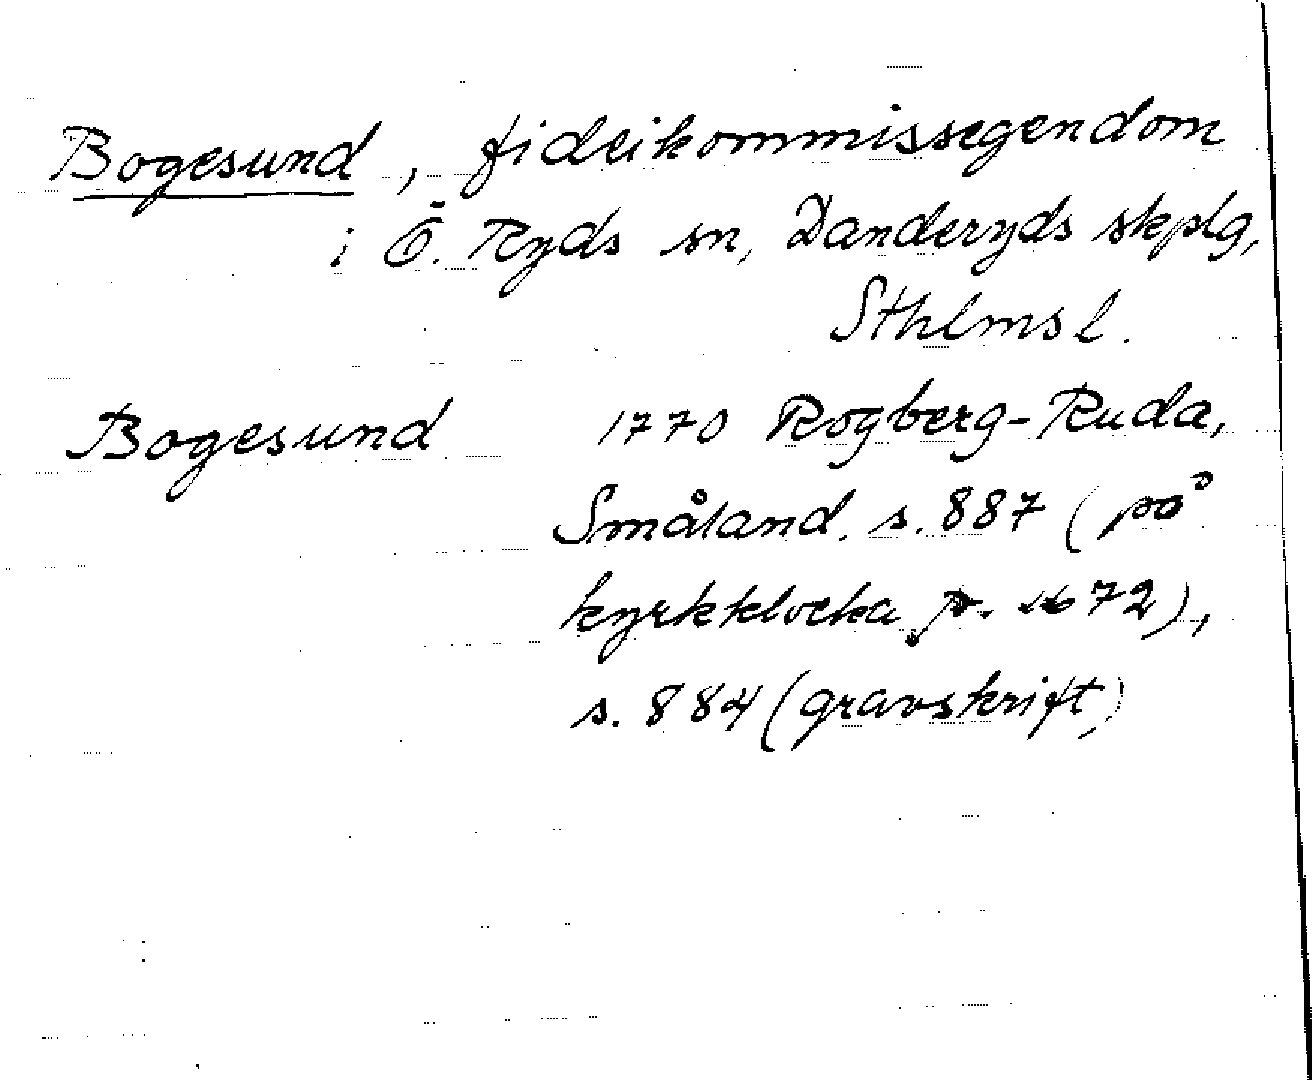 Bogesund, fideikommissegendom
i Ö. Ryds sn, Danderyds skplg,
Sthlms l.
Bogesund 1770 Rogberg-Ruda,
Småland, s. 887 (på
kyrkklocka fr. 1672),
s. 884 (gravskrift)